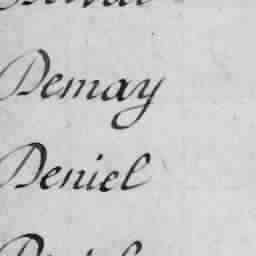 Demay
Deniel